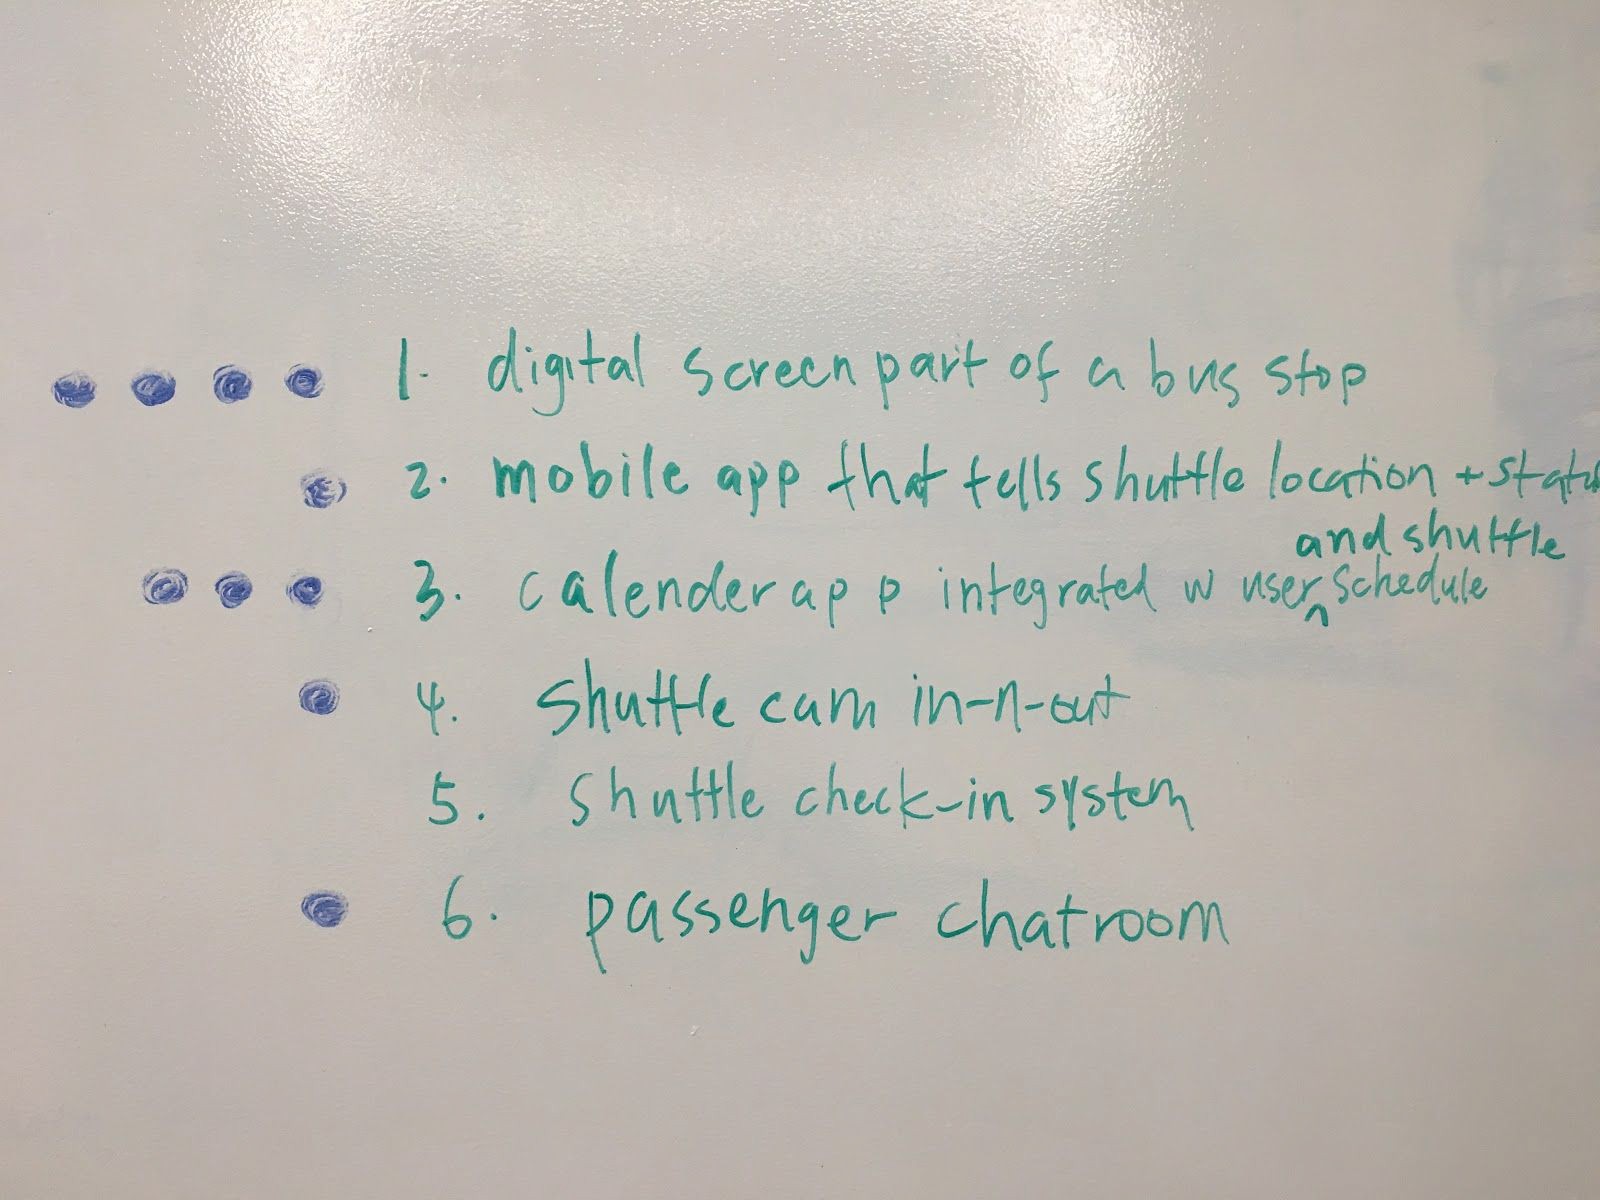 1. digital screen part of a bus stop
2. mobile app that tells shuttle location + statu
and shuttle
3. calender app integrated w user ^ schedule
4. shuttle cam in-n-out
5. shuttle check-in system
6. passenger chatroom